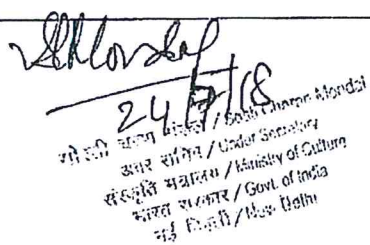 SCMondal
24/7/18
चरण / Charan Mondal
अवर सचिव / Under Secretary
संस्कृति मंत्रालय / Ministry of Culture
भारत सरकार / Govt. of India
नई दिल्ली / New Delhi